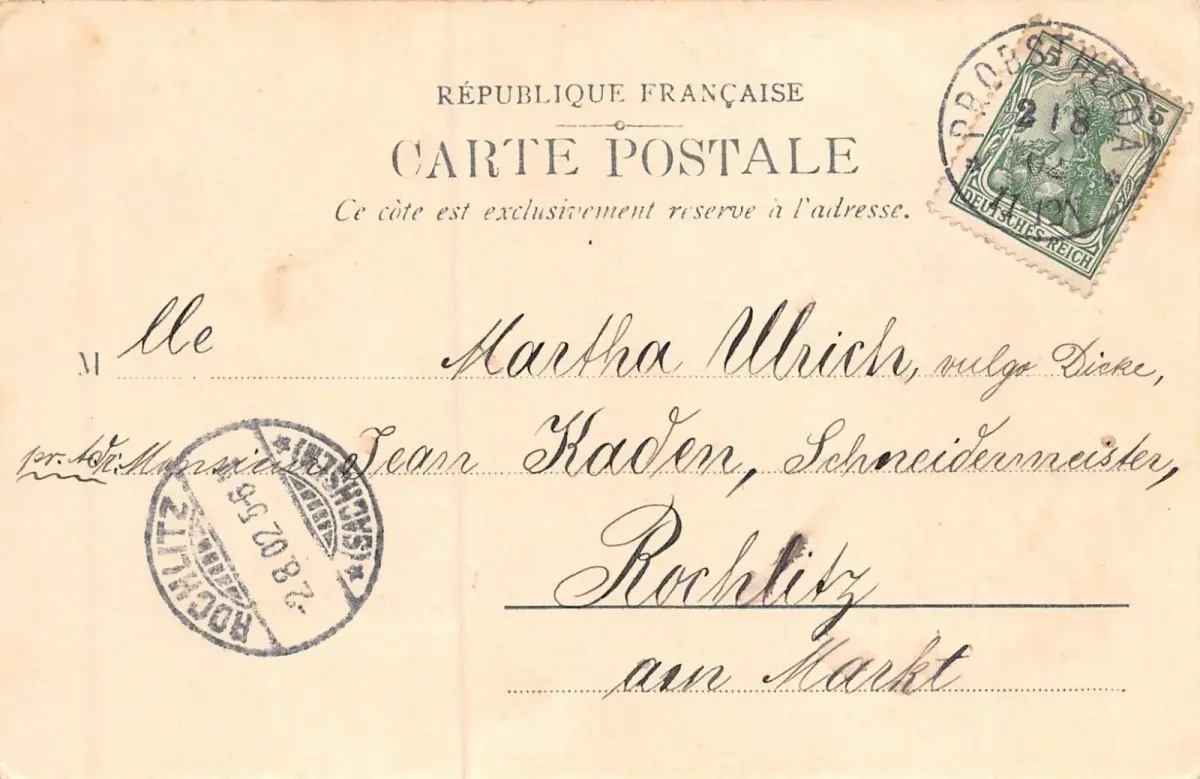 RÉPUBLIQUE FRANÇAISE
CARTE POSTALE
Ce côte est exclusivement reserve à l'adresse.
PROBSTHEIDA
2 8
02
11-12N
5 5
DEUTSCHES REICH
Mlle Martha Ulrich, vulgo Dicke,
pr. Adr: Monsieur Jean Kaden, Schneidermeister,
Rochlitz
am Markt
ROCHLITZ
2.8.02.5-6
(SACHSEN)